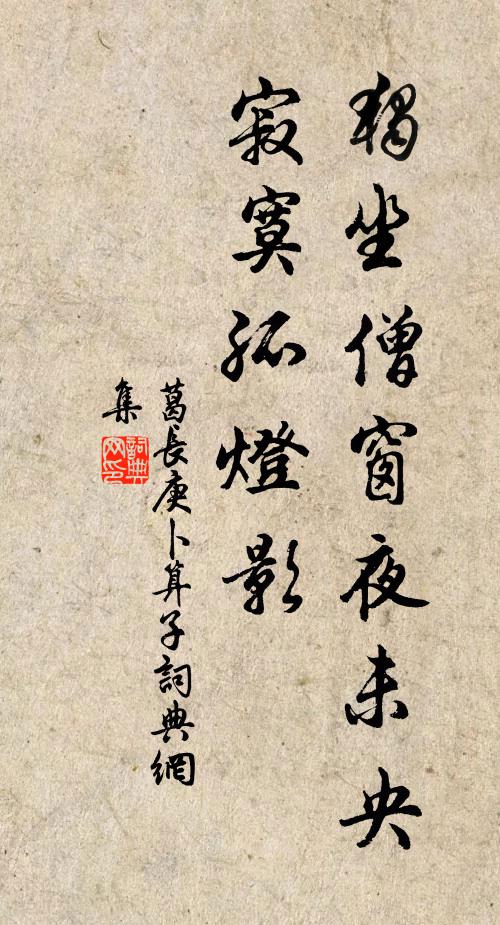 獨坐僧窗夜未央
寂寞孤燈影
葛長庚卜算子詞典網
集
詞典网印